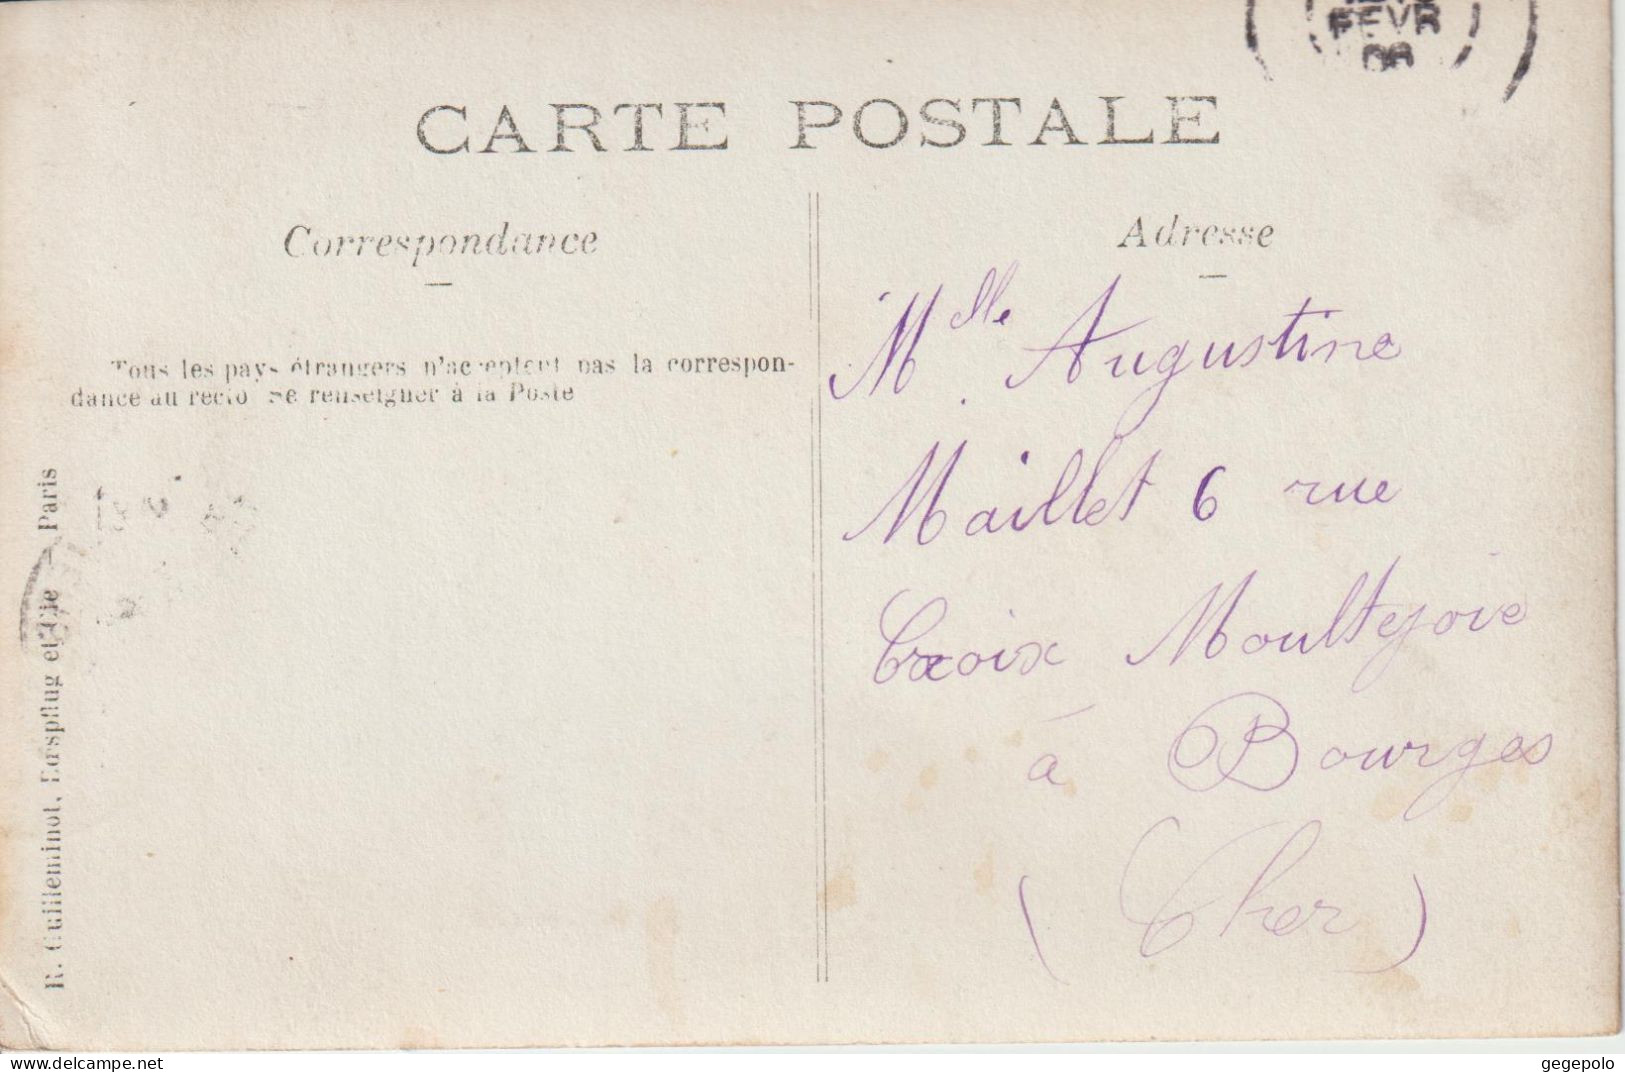 FEVR
06
CARTE POSTALE
Correspondance
Adresse
Tous les pays étrangers n'acceptent pas la correspon-
dance au recto Se renseigner à la Poste
R. Guilleminot, Bœspflug et Cie — Paris
Mlle Augustine
Maillet 6 rue
Croix Moultejoie
à Bourges
(Cher)
www.delcampe.net
gegepolo